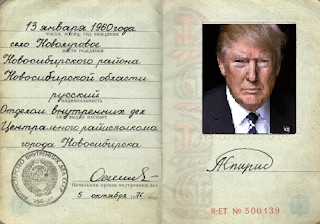 13 января 1960 года
село Новолуговое
Новосибирского района
Новосибирской области
русский
национальность
Отделом внутренних дел
Центрального райисполкома
города Новосибирска
Начальник органа внутренних дел
5 октября
II-ЕТ № 500139